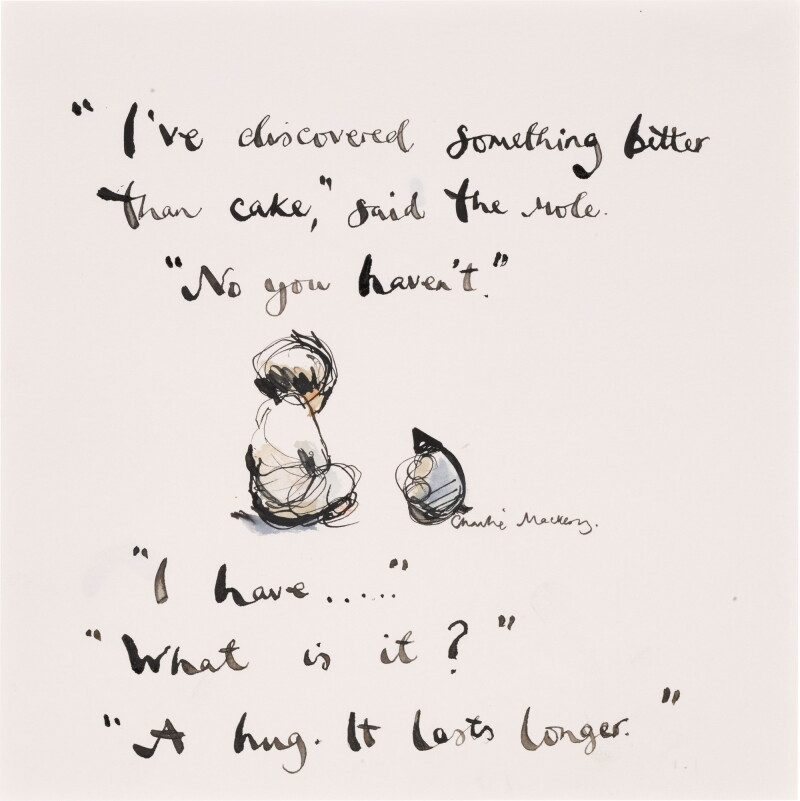 "I've discovered something better
than cake," said the mole.
"No you haven't."
Charlie Mackesy.
"I have....."
"What is it?"
"A hug. It lasts longer."